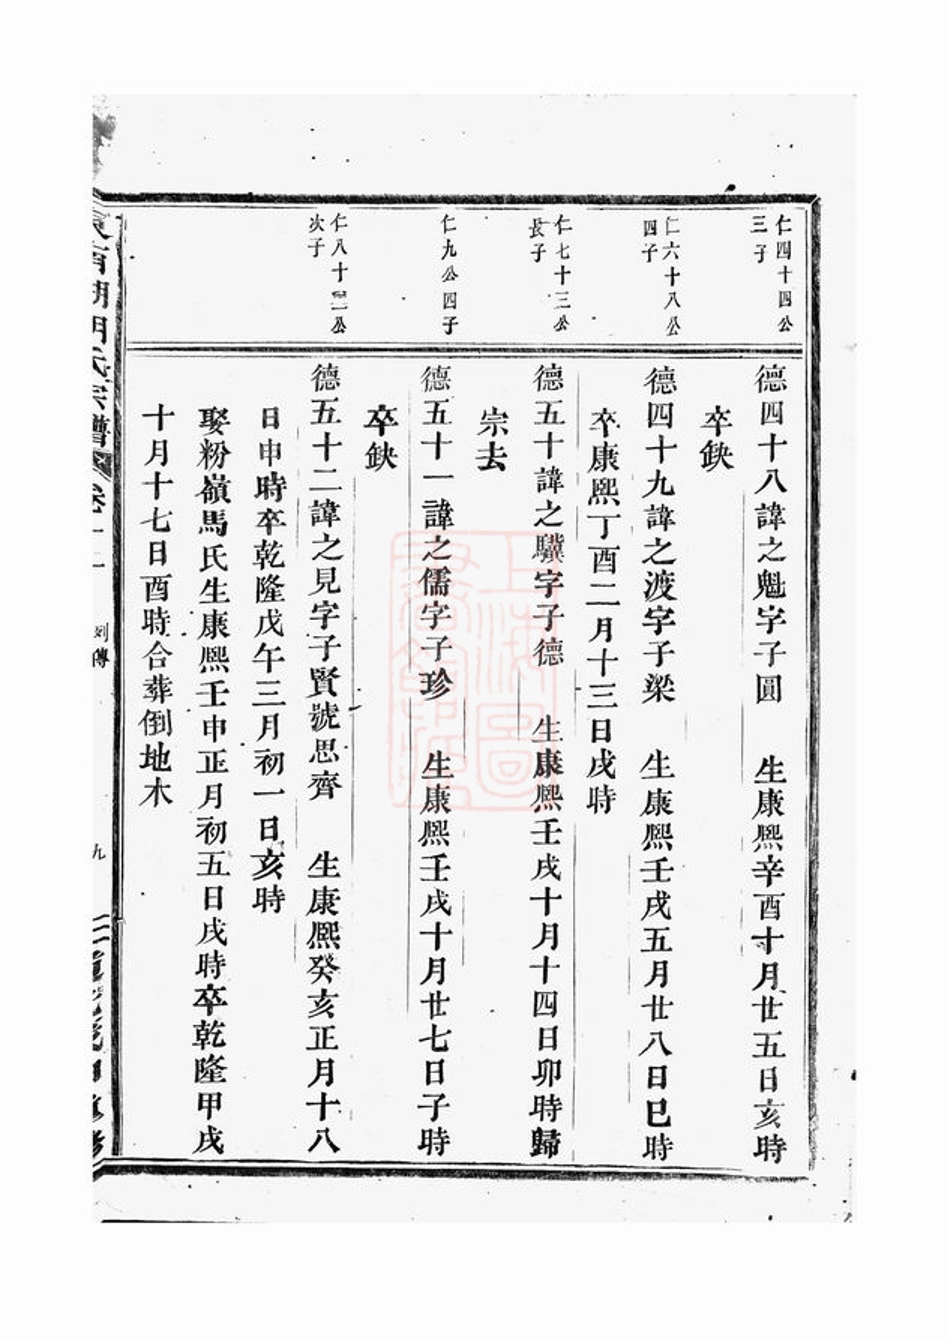 仁四十四公
三子
德四十八諱之魁字子圓　生康熙辛酉十月廿五日亥時
卒缺
仁六十八公
四子
德四十九諱之渡字子梁　生康熙壬戌五月廿八日巳時
卒康熙丁酉二月十三日戌時
仁七十三公
長子
德五十諱之驥字子德　生康熙壬戌十月十四日卯時歸
宗去
仁九公四子
德五十一諱之儒字子珍　生康熙壬戌十月廿七日子時
卒缺
仁八十二公
次子
德五十二諱之見字子賢號思齊　生康熙癸亥正月十八
日申時卒乾隆戊午三月初一日亥時
娶粉嶺馬氏生康熙壬申正月初五日戌時卒乾隆甲戌
十月十七日酉時合葬倒地木
湖胡氏宗譜
列傳
九
上海圖